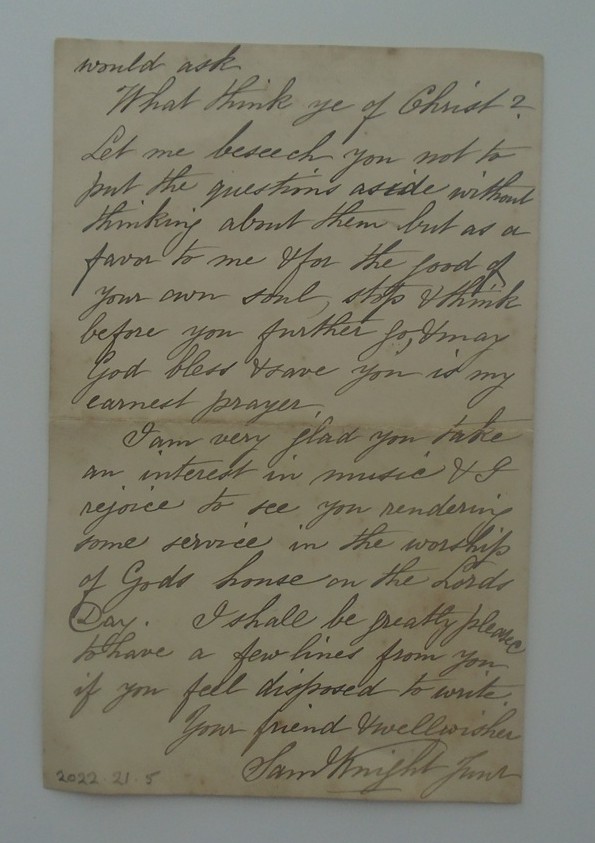 would ask
What think ye of Christ?
Let me beseech you not to
put the questions aside without
thinking about them but as a
favor to me & for the good of
your own soul, stop & think
before you further go, & may
God bless & save you is my
earnest prayer.
I am very glad you take
an interest in music & I
rejoice to see you rendering
some service in the worship
of Gods house on the Lords
Day. I shall be greatly please
to have a few lines from you
if you feel disposed to write.
Your friend & wellwisher
Saml Knight Junr
2022.21.5